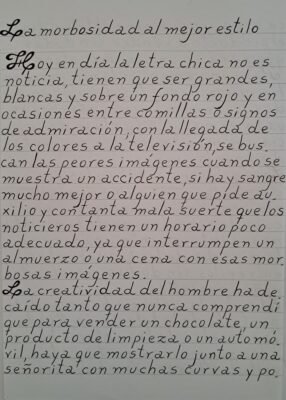 La morbosidad al mejor estilo
Hoy en día la letra chica no es
noticia, tienen que ser grandes,
blancas y sobre un fondo rojo y en
ocasiones entre comillas o signos
de admiración, con la llegada de
los colores a la televisión, se bus.
can las peores imágenes cuando se
muestra un accidente, si hay sangre
mucho mejor o alguien que pide au.
xilio y con tanta mala suerte que los
noticieros tienen un horario poco
adecuado, ya que interrumpen un
almuerzo o una cena con esas mor.
bosas imágenes.
La creatividad del hombre ha de.
caído tanto que nunca comprendí
que para vender un chocolate, un
producto de limpieza o un automó.
vil, haya que mostrarlo junto a una
señorita con muchas curvas y po.